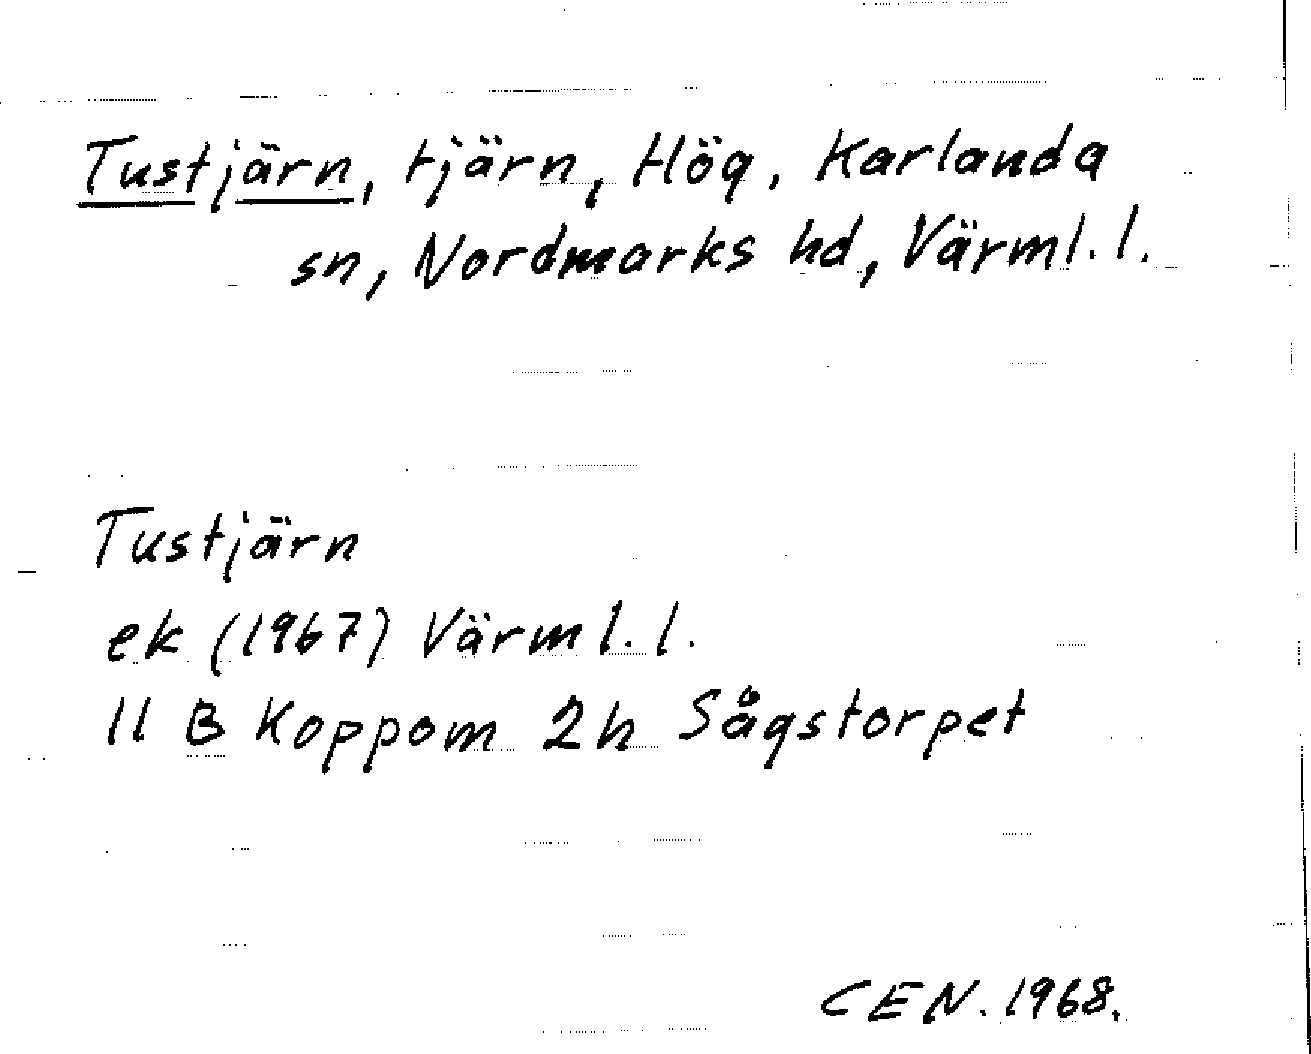 Tustjärn, tjärn, Hög, Karlanda
sn, Nordmarks hd, Värml. l.
Tustjärn
ek (1967) Värml. l.
11 B Koppom 2h Sågstorpet
CEN. 1968.